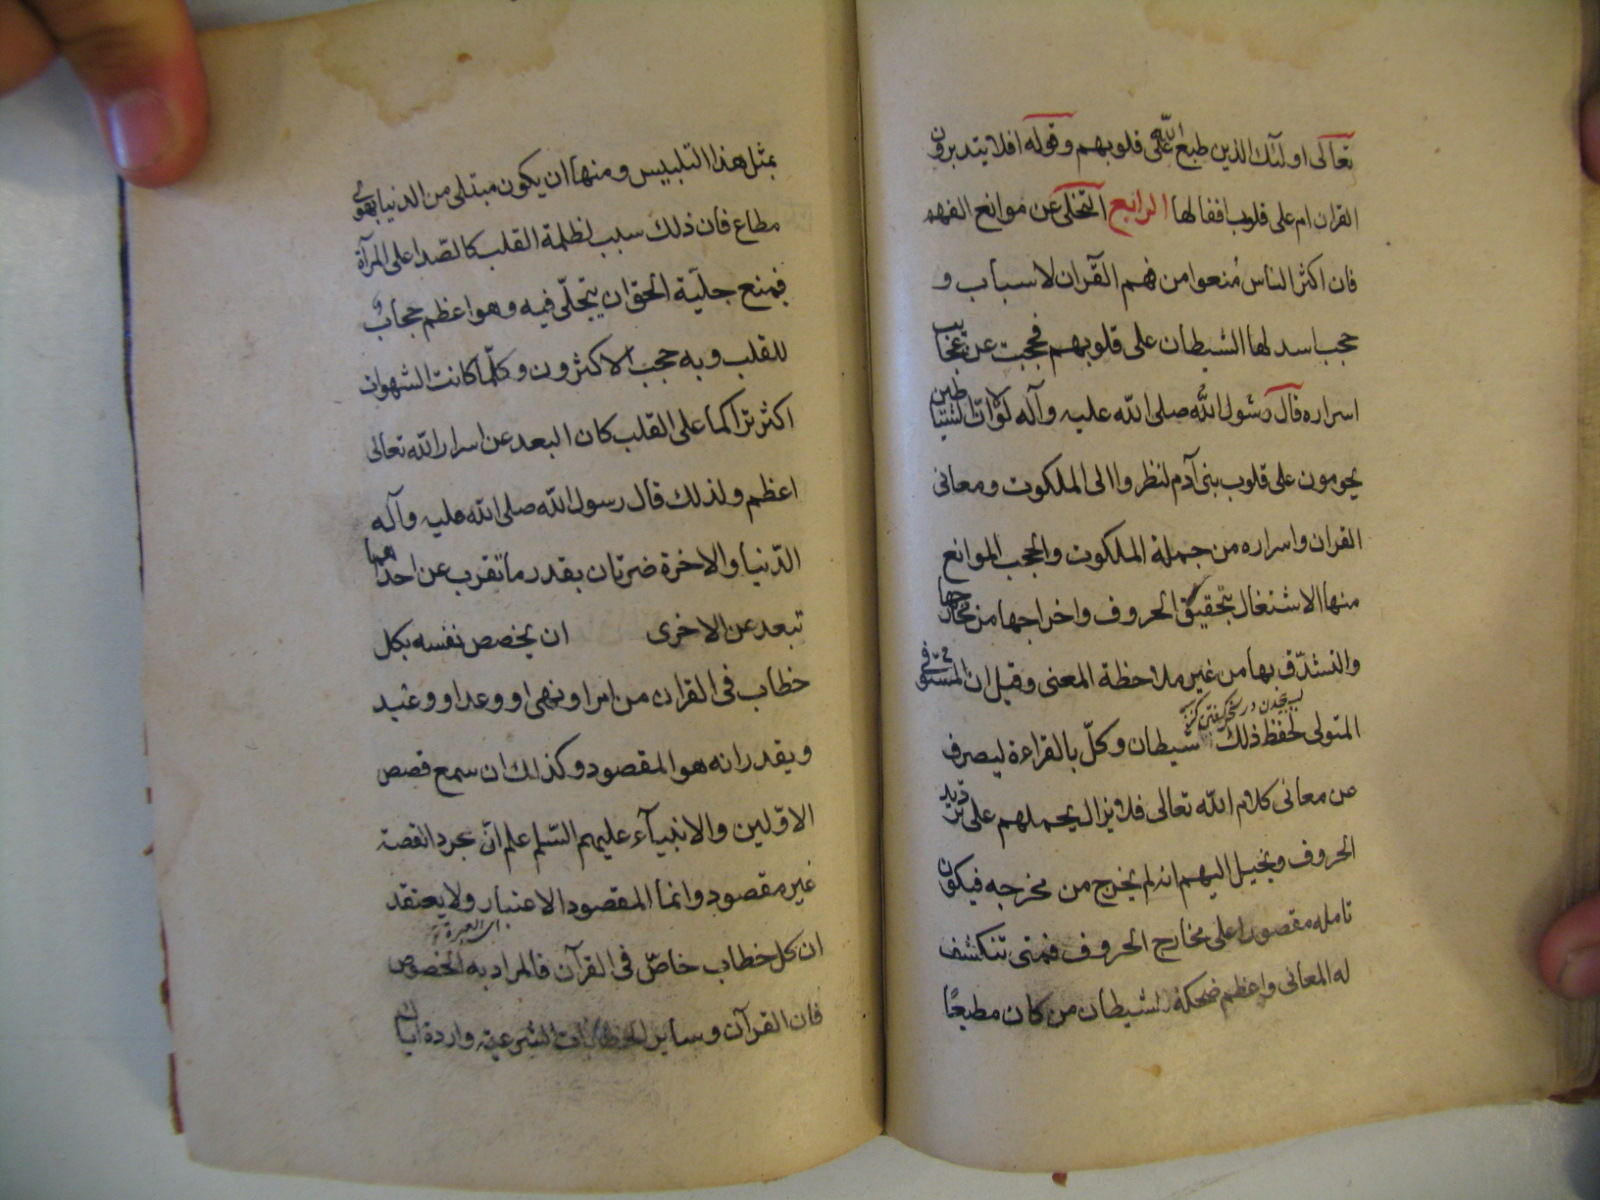 تعالى اولئك الذين طبع الله على قلوبهم وقوله افلا يتدبرون
القران ام على قلوب اقفالها الرابع التخلى عن موانع الفهم
فان اكثر الناس مُنعوا من فهم القرآن لاسباب و
حجب اسدلها الشيطان على قلوبهم فحجبت عن عجايب
اسراره قال رسول الله صلى الله عليه وآله لولا ان الشياطين
يحومون على قلوب بنى آدم لنظروا الى الملكوت ومعانى
القران واسراره من جملة الملكوت والحجب الموانع
منها الاشتغال بتحقيق الحروف واخراجها من مخارجها
والتشدّق بها من غير ملاحظة المعنى وقيل ان
المتولى لحفظ ذلك شيطان وكلّ بالقراءة ليصرف
عن معانى كلام الله تعالى فلا يزال يحملهم على ترديد
الحروف ويخيل اليهم انه لم يخرج من مخرجه فيكون
تامله مقصورا على مخارج الحروف فمتى تنكشف
له المعانى واعظم ضحكة للشيطان من كان مطيعًا
بمثل هذا التلبيس ومنها ان يكون مبتلى من الدنيا بهوى
مطاع فان ذلك سبب لظلمة القلب كالصّدا على المرآة
فيمنع جليّة الحق ان يتجلّى فيه وهو اعظم حجاب
للقلب وبه حجب الاكثرون وكلّما كانت الشهوات
اكثر تراكما على القلب كان البعد عن اسرار الله تعالى
اعظم ولذلك قال رسول الله صلى الله عليه وآله
الدّنيا والاخرة ضرتان بقدر ما تقرب عن احداهما
تبعد عن الاخرى ان يخصص نفسه بكل
خطاب فى القران من امر او نهى او وعد او وعيد
ويقدر انه هو المقصود وكذلك ان سمع قصص
الاوّلين والانبيآء عليهم السّلم علم انّ مجرد القصة
غير مقصود وانما المقصود الاعتبار ولا يعتقد
اى العبرة
ان كل خطاب خاصّ فى القرآن فالمراد به الخصوص
فان القرآن وساير الخطابات الشرعية واردة